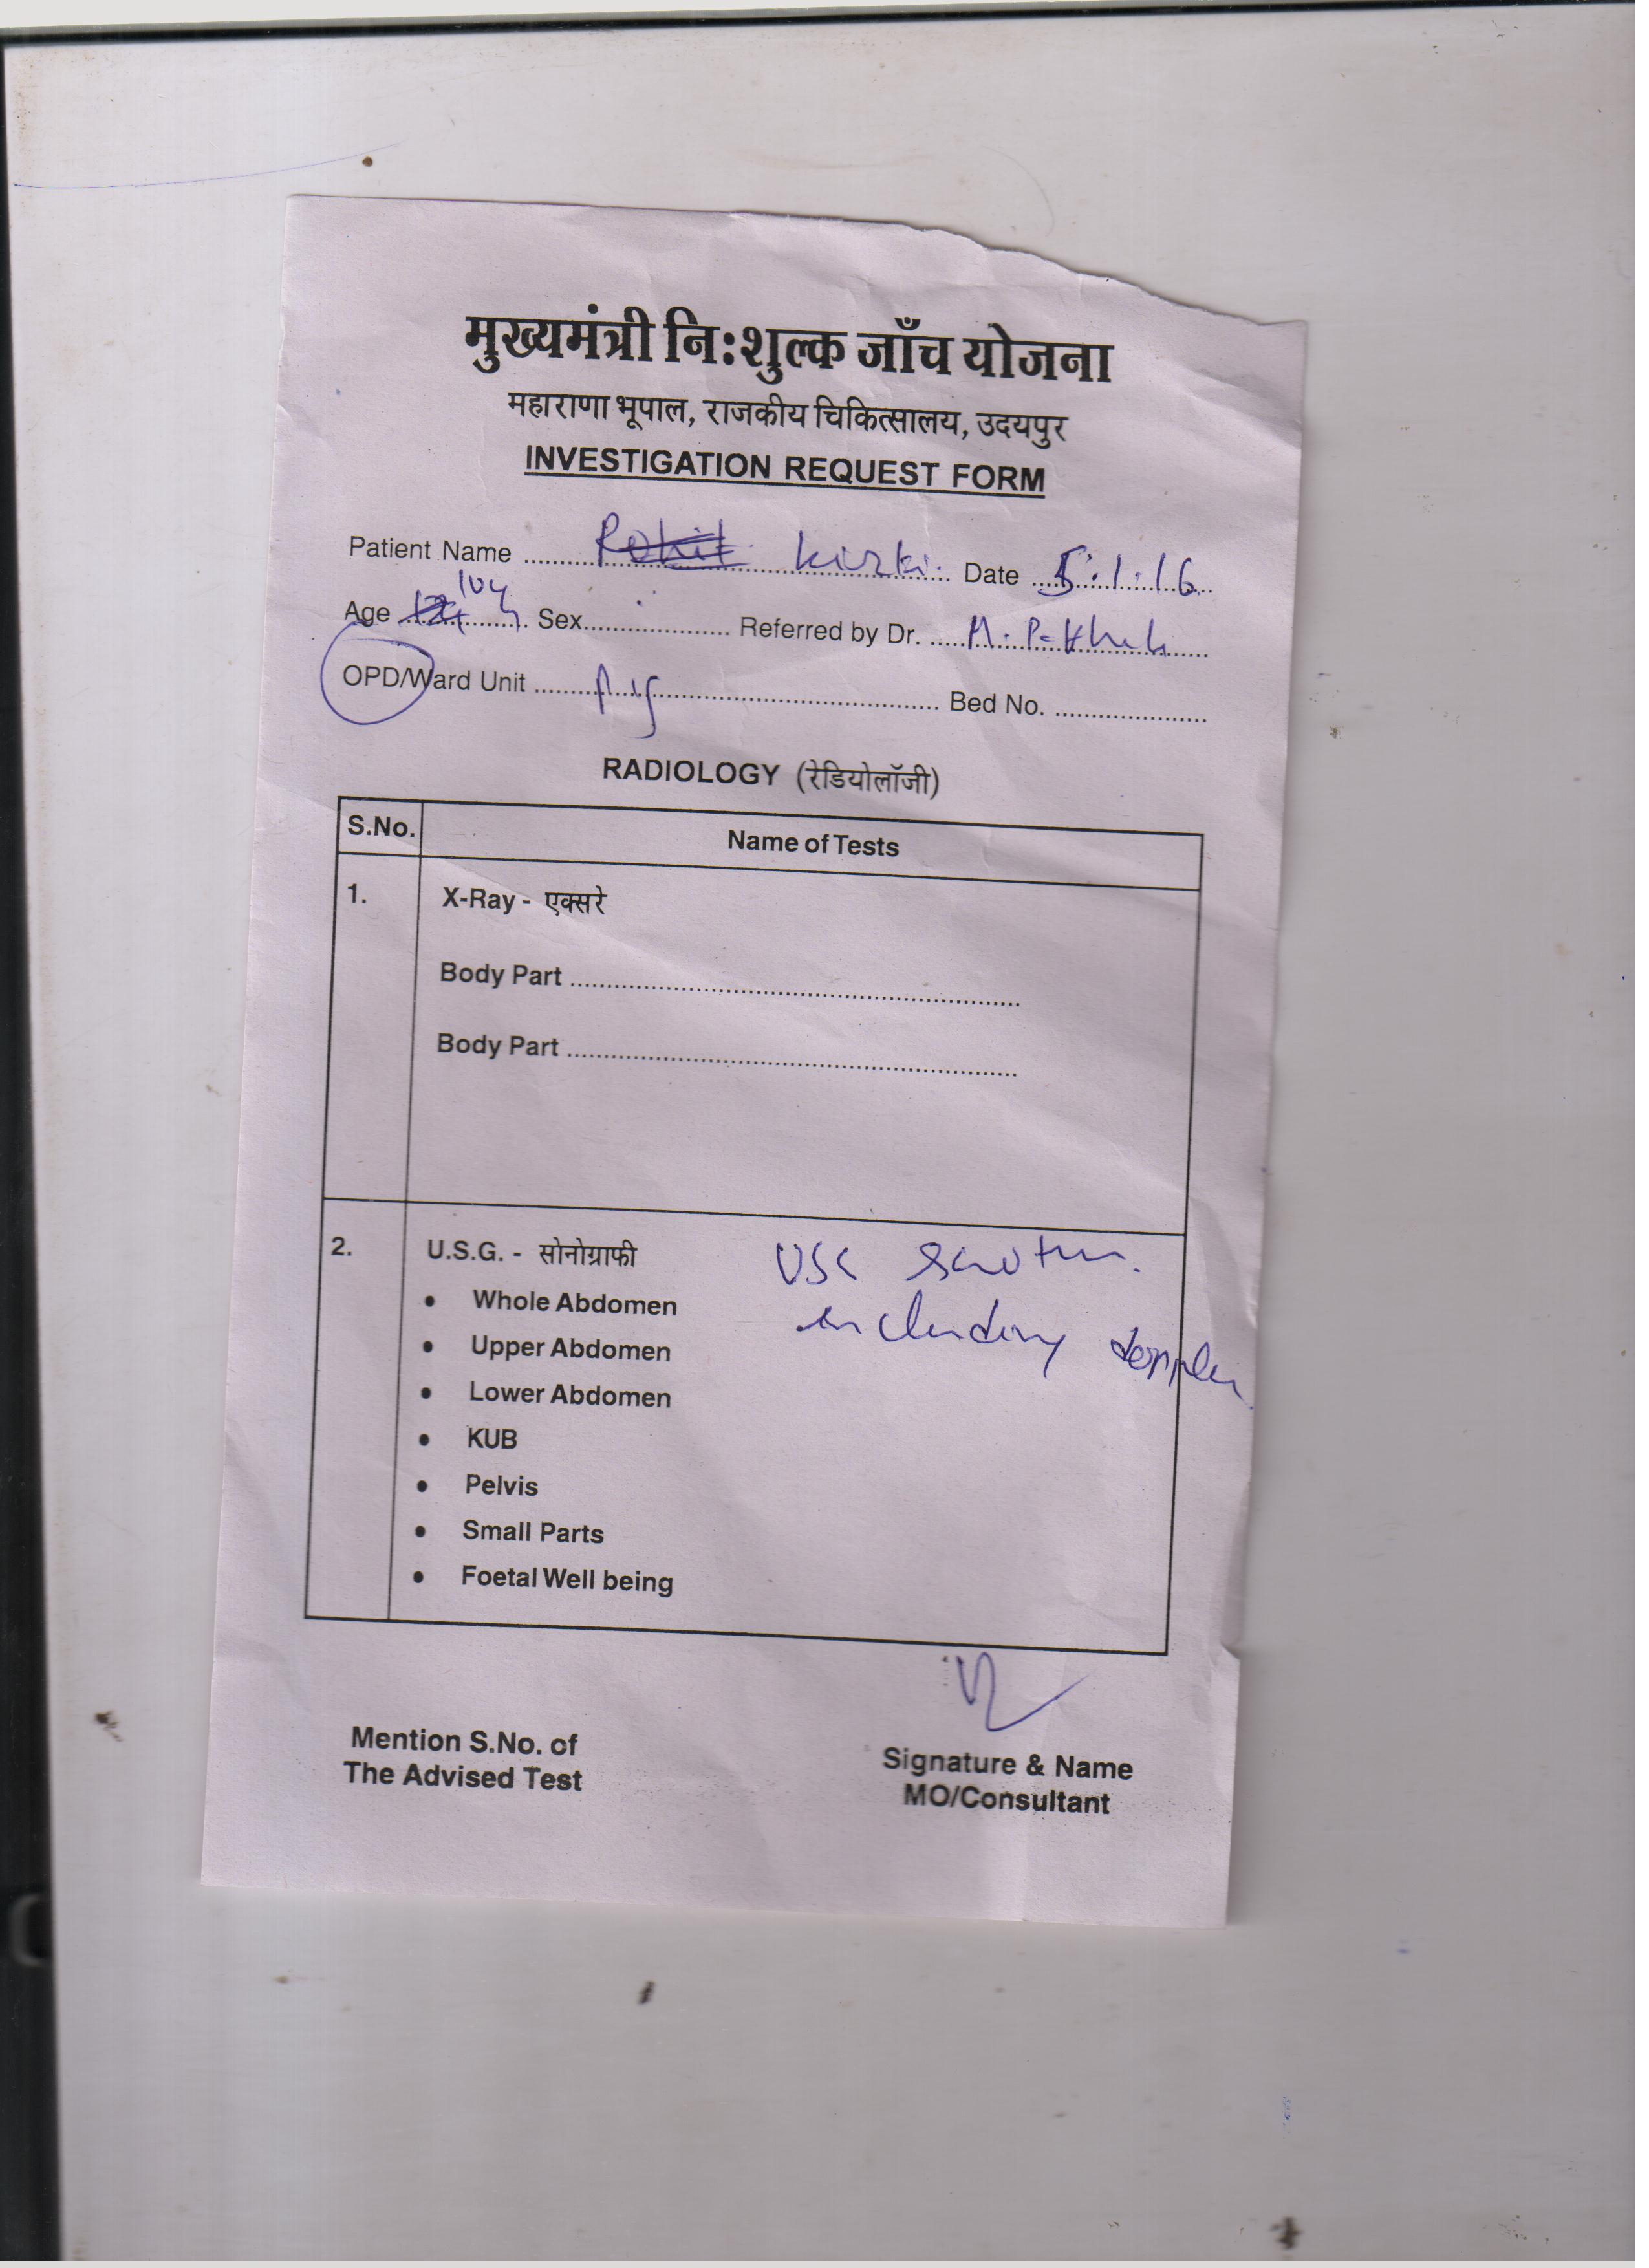 मुख्यमंत्री नि:शुल्क जाँच योजना
महाराणा भूपाल, राजकीय चिकित्सालय, उदयपुर
INVESTIGATION REQUEST FORM
Patient Name Rohit Date 5.1.16
Age Sex Referred by Dr.
OPD/Ward Unit Bed No.
RADIOLOGY (रेडियोलॉजी)
S.No. Name of Tests
1. X-Ray - एक्सरे
Body Part
Body Part
2. U.S.G. - सोनोग्राफी USG scrotum.
• Whole Abdomen including doppler
• Upper Abdomen
• Lower Abdomen
• KUB
• Pelvis
• Small Parts
• Foetal Well being
Mention S.No. of
The Advised Test
Signature & Name
MO/Consultant